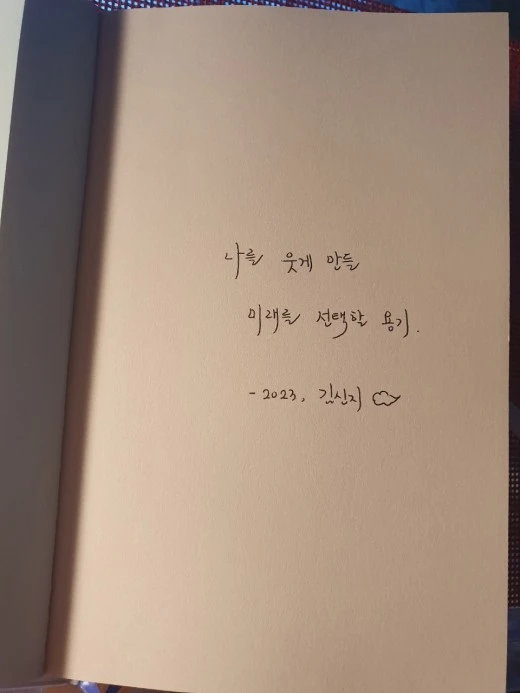 나를 웃게 만들
미래를 선택할 용기.
- 2023, 김신지